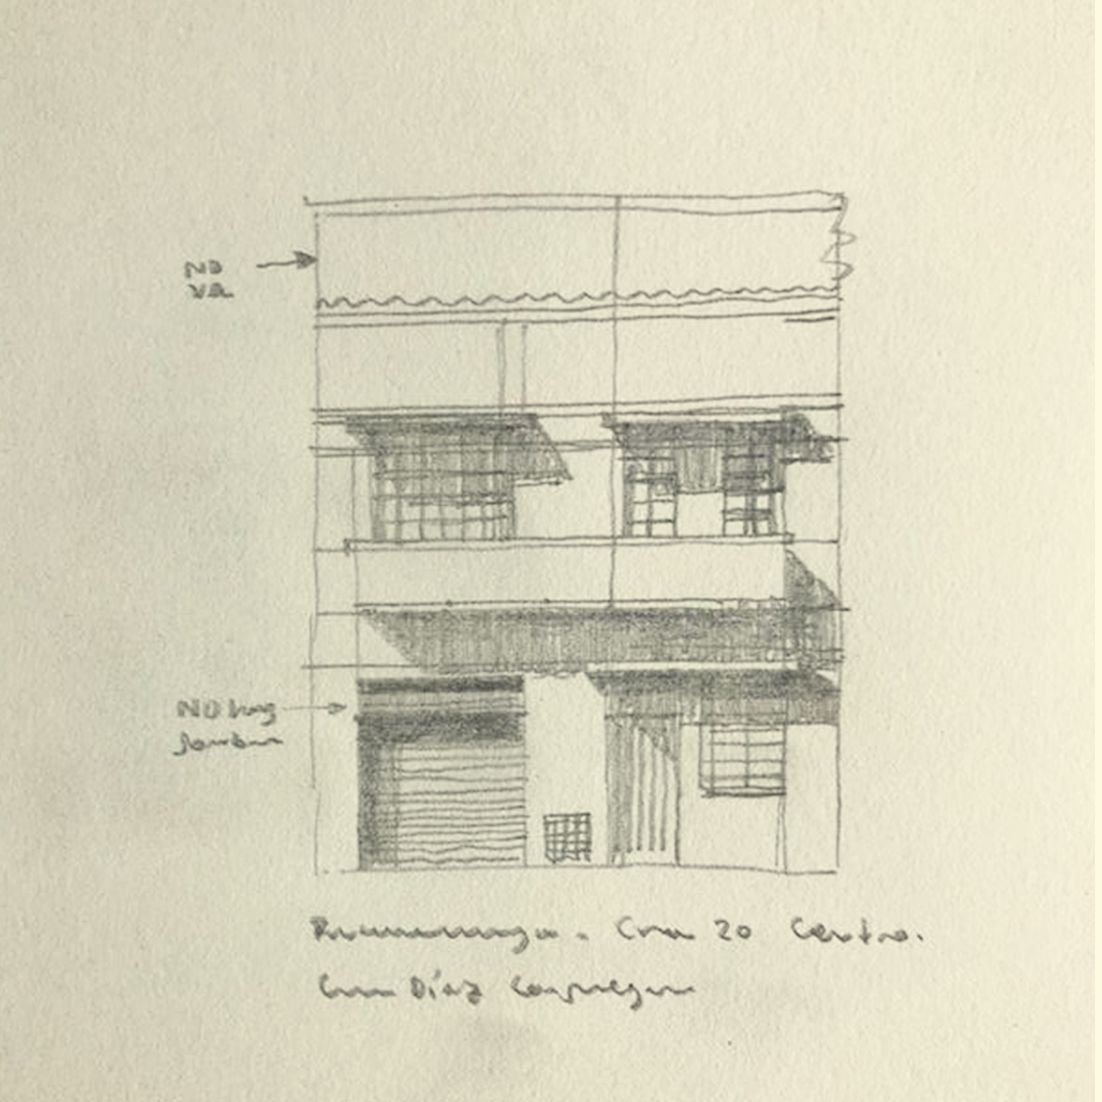 NO
VA
NO hay
sombra
Bucaramanga. Cra 20 Centro.
Casa Díaz Consuegra